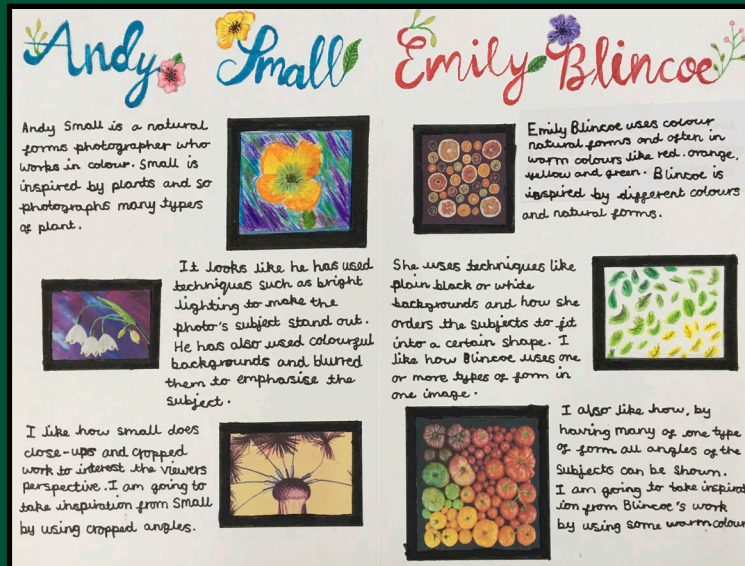 Andy Small
Andy Small is a natural
forms photographer who
works in colour. Small is
inspired by plants and so
photographs many types
of plant.
It looks like he has used
techniques such as bright
lighting to make the
photo's subject stand out.
He has also used colourful
backgrounds and blurred
them to emphasise the
subject.
I like how small does
close-ups and cropped
work to interest the viewers
perspective. I am going to
take inspiration from Small
by using cropped angles.
Emily Blincoe
Emily Blincoe uses colour
natural forms and often in
warm colours like red, orange,
yellow and green. Blincoe is
inspired by different colours
and natural forms.
She uses techniques like
plain black or white
backgrounds and how she
orders the subjects to fit
into a certain shape. I
like how Blincoe uses one
or more types of form in
one image.
I also like how, by
having many of one type
of form all angles of the
subjects can be shown.
I am going to take inspirat
ion from Blincoe's work
by using some warm colour